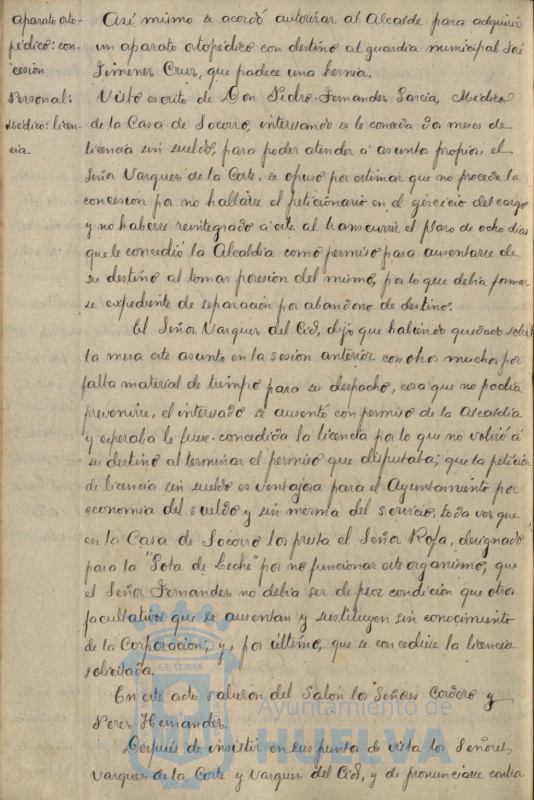 aparato orto-
pédico: con-
cesion
Así mismo se acordó autorizar al Alcalde para adquirir
un aparato ortopédico con destino al guardia municipal José
Jimenez Cruz, que padece una hernia.
Personal:
Médico: licen-
cia.
Visto escrito de Don Pedro Fernandez Garcia, Médico
de la Casa de Socorro, interesando se le conceda dos meses de
licencia sin sueldo, para poder atender á asuntos propios, el
Señor Vazquez de la Corte, se opuso por estimar que no procede la
concesion por no hallarse el peticionario en el ejercicio del cargo
y no haberse reintegrado á éste al transcurrir el plazo de ocho dias
que le concedió la Alcaldia como permiso para ausentarse de
su destino al tomar posesion del mismo, por lo que debia formar
se expediente de separacion por abandono de destino.
El Señor Vazquez del Cid, dijo que habiendo quedado sobre
la mesa este asunto en la sesion anterior con otros muchos por
falta material de tiempo para su despacho, cosa que no podia
prevenirse, el interesado se ausentó con permiso de la Alcaldia
y esperaba le fuese concedida la licencia por lo que no volvió á
su destino al terminar el permiso que disfrutaba; que la peticion
de licencia sin sueldo es ventajosa para el Ayuntamiento por
economia del sueldo y sin merma del servicio, toda vez que
en la Casa de Socorro los presta el Señor Rofa, designado
para la "Gota de Leche" por no funcionar este organismo, que
el Señor Fernandez no debia ser de peor condición que otros
facultativos que se ausentan y sustituyen sin conocimiento
de la Corporacion; y, por último, que se concediese la licencia
solicitada.
En este acto salieron del Salón los Señores Cordero y
Perez Hernandez.
Después de insistir en sus puntos de vista los Señores
Vazquez de la Corte y Vazquez del Cid, y de pronunciarse contra
Ayuntamiento de
HUELVA